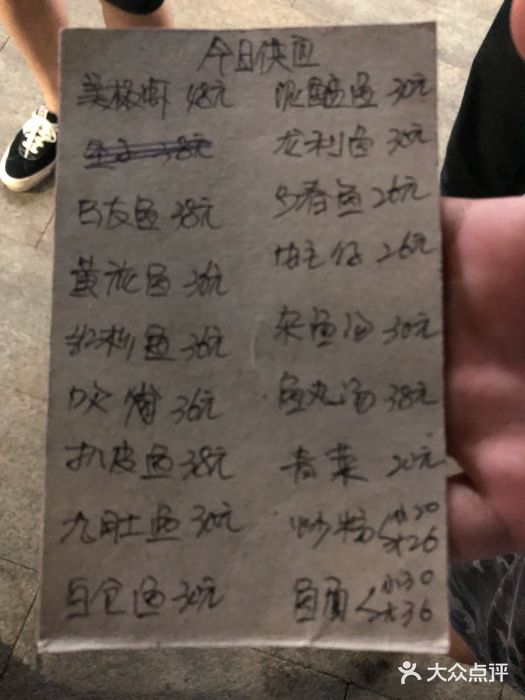 今日供应
美极虾 48元
38元
马友鱼 38元
黄旗鱼 36元
红杉鱼 36元
36元
扒皮鱼 38元
九肚鱼 30元
白仓鱼 30元
泥鯭鱼 30元
龙利鱼 30元
多春鱼 26元
26元
杂鱼汤 30元
鱼丸汤 38元
青菜 20元
炒粉 小20
大26
小30
大36
大众点评